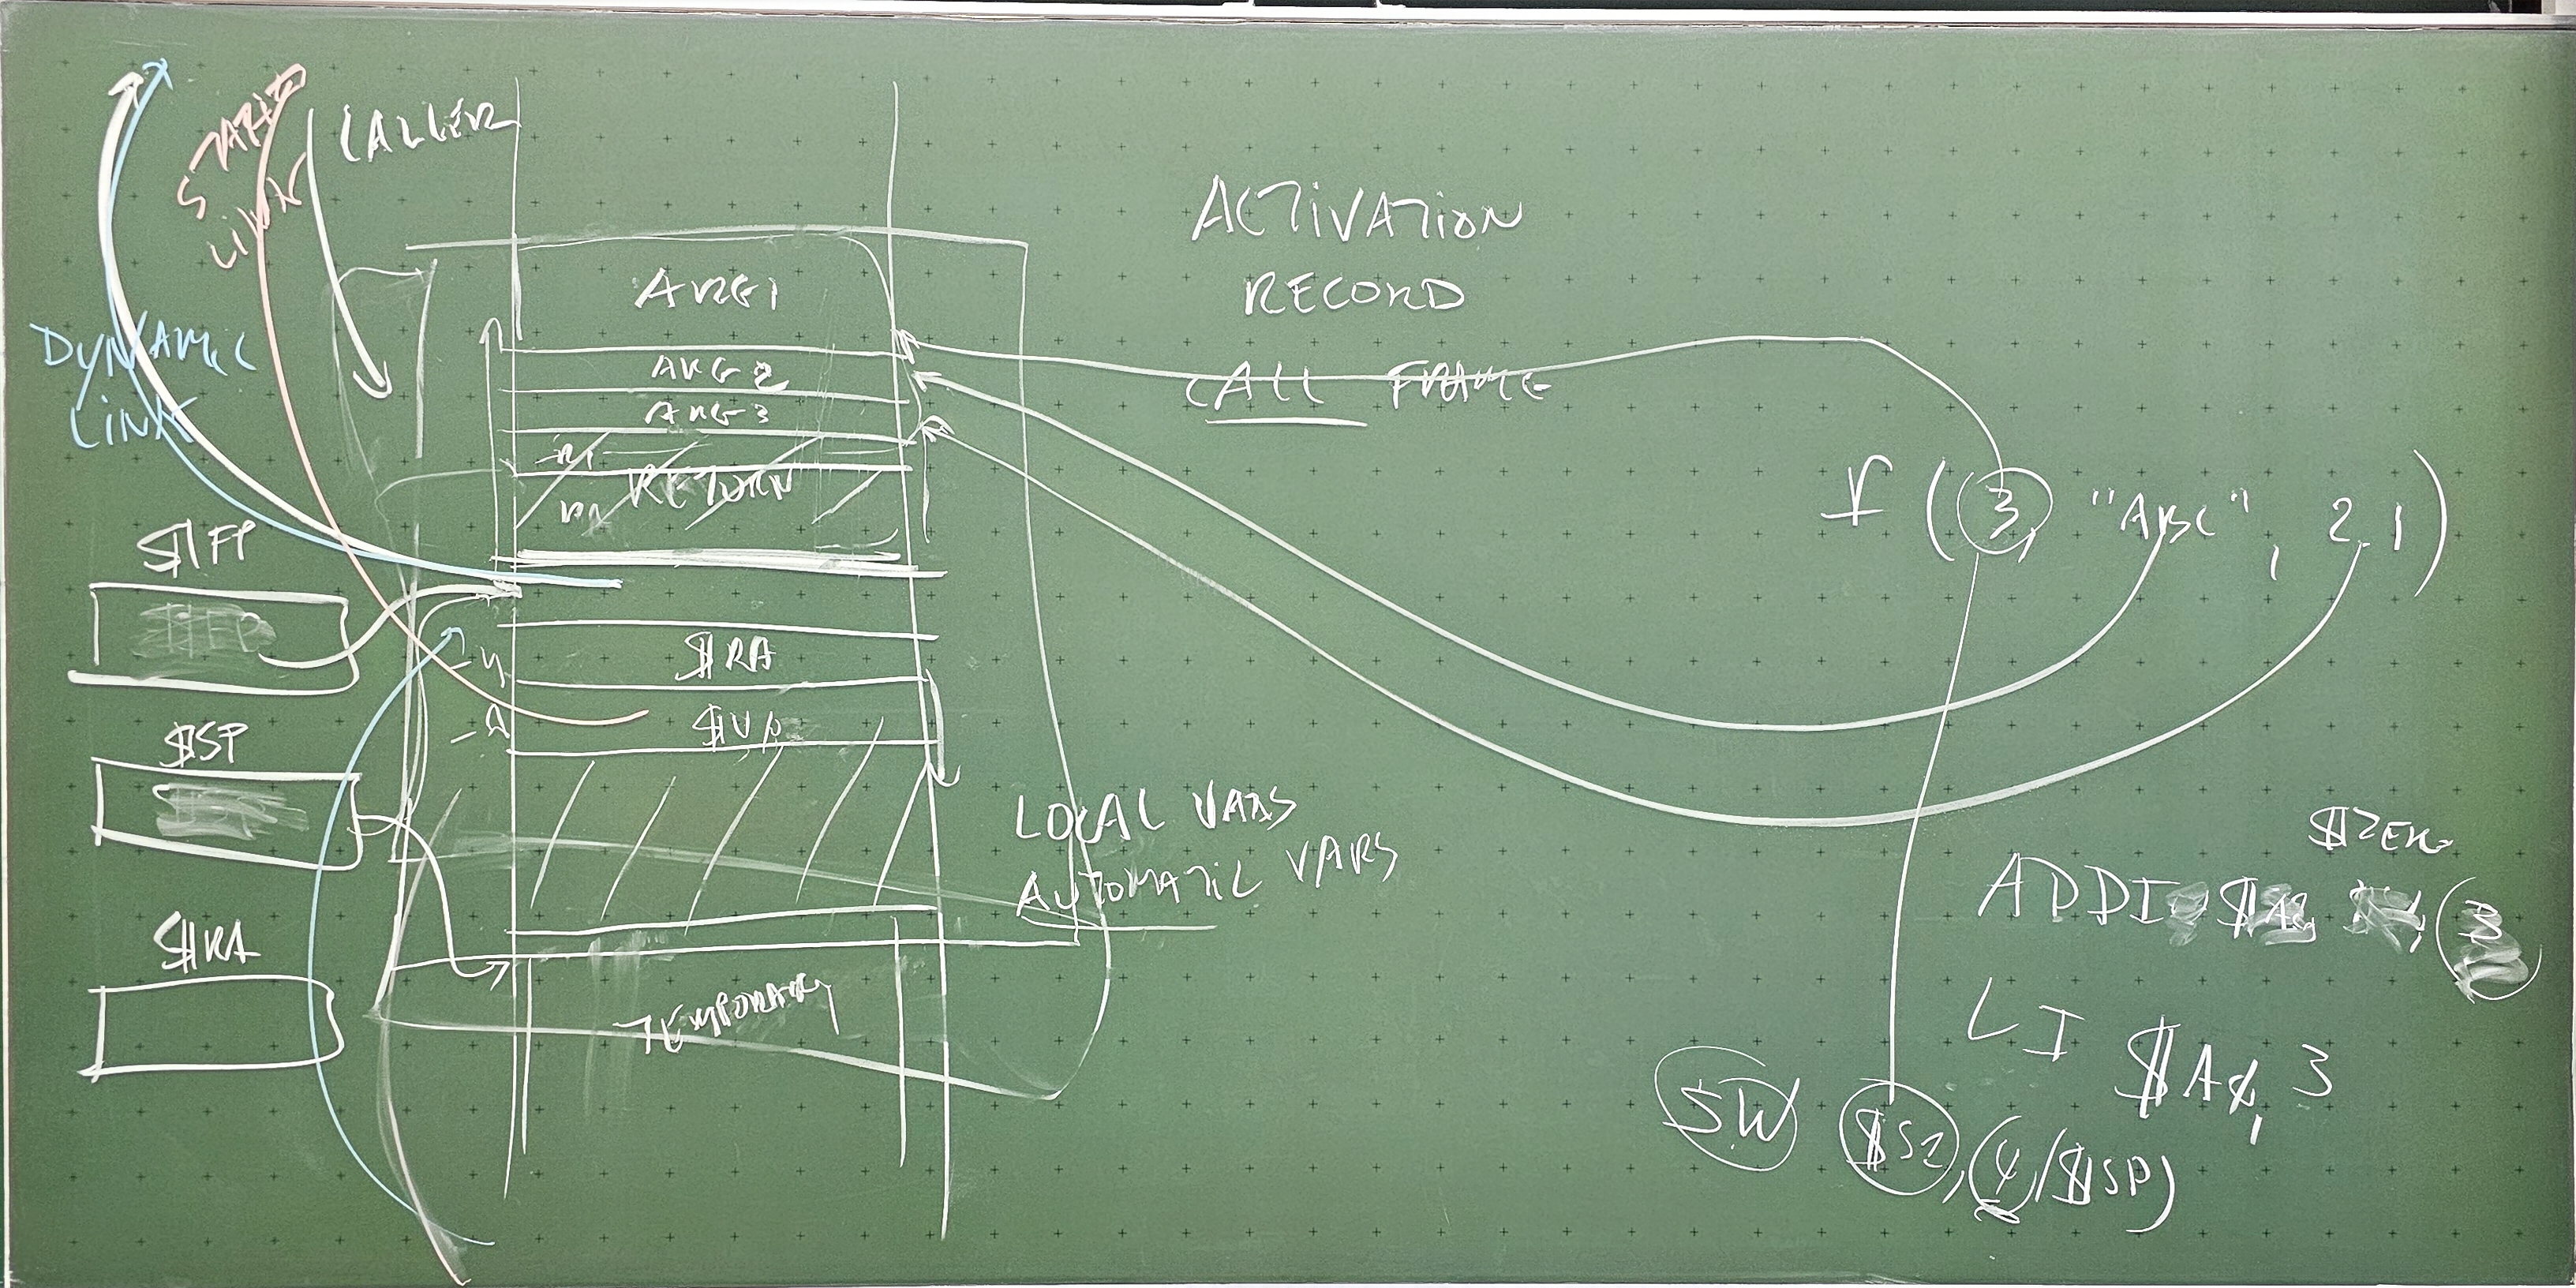 CALLER
STATIC
LINK
DYNAMIC
LINK
ACTIVATION
RECORD
CALL FRAME
ARG1
ARG2
ARG3
RETURN
$FP
$SP
$RA
$RA
-4
-8
LOCAL VARS
AUTOMATIC VARS
TEMPORARY
F (3, "ABC", 2, 1)
$ZERO
ADDI
LI $A0, 3
SW $S2, 4($SP)